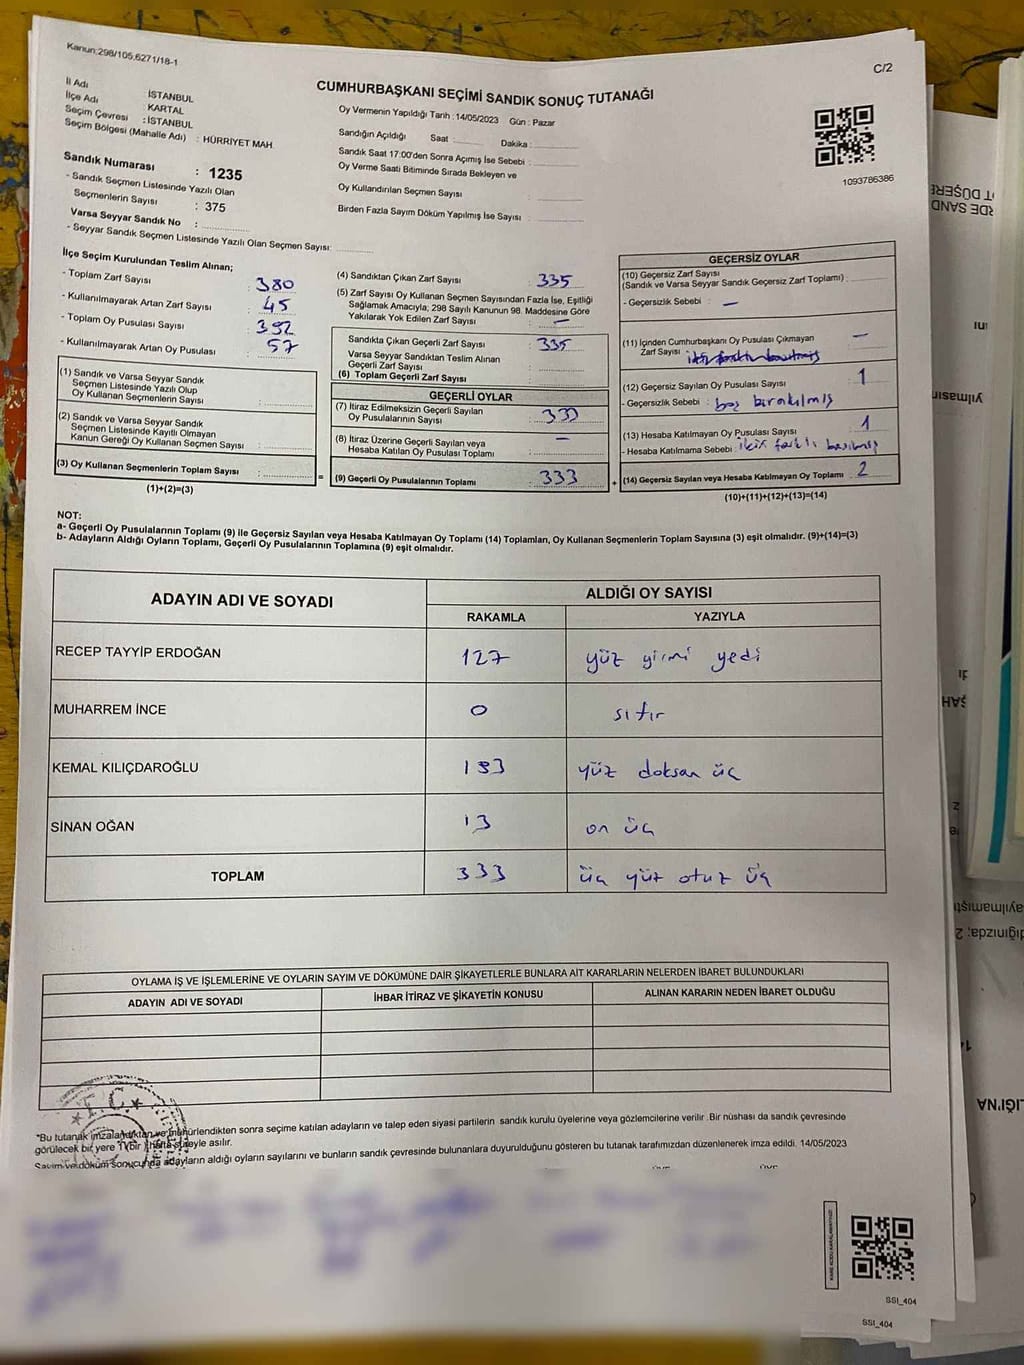 Kanun:298/105,6271/18-1
C/2
CUMHURBAŞKANI SEÇİMİ SANDIK SONUÇ TUTANAĞI
İl Adı İSTANBUL
İlçe Adı KARTAL
Seçim Çevresi : İSTANBUL
Seçim Bölgesi (Mahalle Adı) : HÜRRİYET MAH.
Sandık Numarası : 1235
- Sandık Seçmen Listesinde Yazılı Olan
Seçmenlerin Sayısı : 375
Varsa Seyyar Sandık No :
- Seyyar Sandık Seçmen Listesinde Yazılı Olan Seçmen Sayısı:
Oy Vermenin Yapıldığı Tarih : 14/05/2023 Gün : Pazar
Sandığın Açıldığı Saat : Dakika :
Sandık Saat 17:00'den Sonra Açımış İse Sebebi :
Oy Verme Saati Bitiminde Sırada Bekleyen ve
Oy Kullandırılan Seçmen Sayısı
Birden Fazla Sayım Döküm Yapılmış İse Sayısı :
1093786386
İlçe Seçim Kurulundan Teslim Alınan;
- Toplam Zarf Sayısı : 380
- Kullanılmayarak Artan Zarf Sayısı : 45
- Toplam Oy Pusulası Sayısı : 392
- Kullanılmayarak Artan Oy Pusulası : 57
(1) Sandık ve Varsa Seyyar Sandık
Seçmen Listesinde Yazılı Olup
Oy Kullanan Seçmenlerin Sayısı :
(2) Sandık ve Varsa Seyyar Sandık
Seçmen Listesinde Kayıtlı Olmayan
Kanun Gereği Oy Kullanan Seçmen Sayısı :
(3) Oy Kullanan Seçmenlerin Toplam Sayısı :
(1)+(2)=(3)
(4) Sandıktan Çıkan Zarf Sayısı : 335
(5) Zarf Sayısı Oy Kullanan Seçmen Sayısından Fazla İse, Eşitliği
Sağlamak Amacıyla; 298 Sayılı Kanunun 98. Maddesine Göre
Yakılarak Yok Edilen Zarf Sayısı : —
Sandıkta Çıkan Geçerli Zarf Sayısı : 335
Varsa Seyyar Sandıktan Teslim Alınan
Geçerli Zarf Sayısı :
(6) Toplam Geçerli Zarf Sayısı :
GEÇERLİ OYLAR
(7) İtiraz Edilmeksizin Geçerli Sayılan
Oy Pusulalarının Sayısı : 333
(8) İtiraz Üzerine Geçerli Sayılan veya
Hesaba Katılan Oy Pusulası Toplamı : —
(9) Geçerli Oy Pusulalarının Toplamı : 333
GEÇERSİZ OYLAR
(10) Geçersiz Zarf Sayısı
(Sandık ve Varsa Seyyar Sandık Geçersiz Zarf Toplamı) :
- Geçersizlik Sebebi : —
(11) İçinden Cumhurbaşkanı Oy Pusulası Çıkmayan
Zarf Sayısı : —
(12) Geçersiz Sayılan Oy Pusulası Sayısı : 1
- Geçersizlik Sebebi : boş bırakılmış
(13) Hesaba Katılmayan Oy Pusulası Sayısı : 1
- Hesaba Katılmama Sebebi : farklı basılmış
(14) Geçersiz Sayılan veya Hesaba Katılmayan Oy Toplamı : 2
(10)+(11)+(12)+(13)=(14)
NOT:
a- Geçerli Oy Pusulalarının Toplamı (9) ile Geçersiz Sayılan veya Hesaba Katılmayan Oy Toplamı (14) Toplamları, Oy Kullanan Seçmenlerin Toplam Sayısına (3) eşit olmalıdır. (9)+(14)=(3)
b- Adayların Aldığı Oyların Toplamı, Geçerli Oy Pusulalarının Toplamına (9) eşit olmalıdır.
ADAYIN ADI VE SOYADI
ALDIĞI OY SAYISI
RAKAMLA YAZIYLA
RECEP TAYYİP ERDOĞAN 127 yüz yirmi yedi
MUHARREM İNCE 0 sıfır
KEMAL KILIÇDAROĞLU 193 yüz doksan üç
SİNAN OĞAN 13 on üç
TOPLAM 333 üç yüz otuz üç
OYLAMA İŞ VE İŞLEMLERİNE VE OYLARIN SAYIM VE DÖKÜMÜNE DAİR ŞİKAYETLERLE BUNLARA AİT KARARLARIN NELERDEN İBARET BULUNDUKLARI
ADAYIN ADI VE SOYADI İHBAR İTİRAZ VE ŞİKAYETİN KONUSU ALINAN KARARIN NEDEN İBARET OLDUĞU
T.C.
"Bu tutanak imzalandıktan ve mühürlendikten sonra seçime katılan adayların ve talep eden siyasi partilerin sandık kurulu üyelerine veya gözlemcilerine verilir .Bir nüshası da sandık çevresinde
görülecek bir yere 1 (bir ) hafta süreyle asılır.
Sayım ve döküm sonucunda adayların aldığı oyların sayılarını ve bunların sandık çevresinde bulunanlara duyurulduğunu gösteren bu tutanak tarafımızdan düzenlenerek imza edildi. 14/05/2023
SSI_404
SSI_404